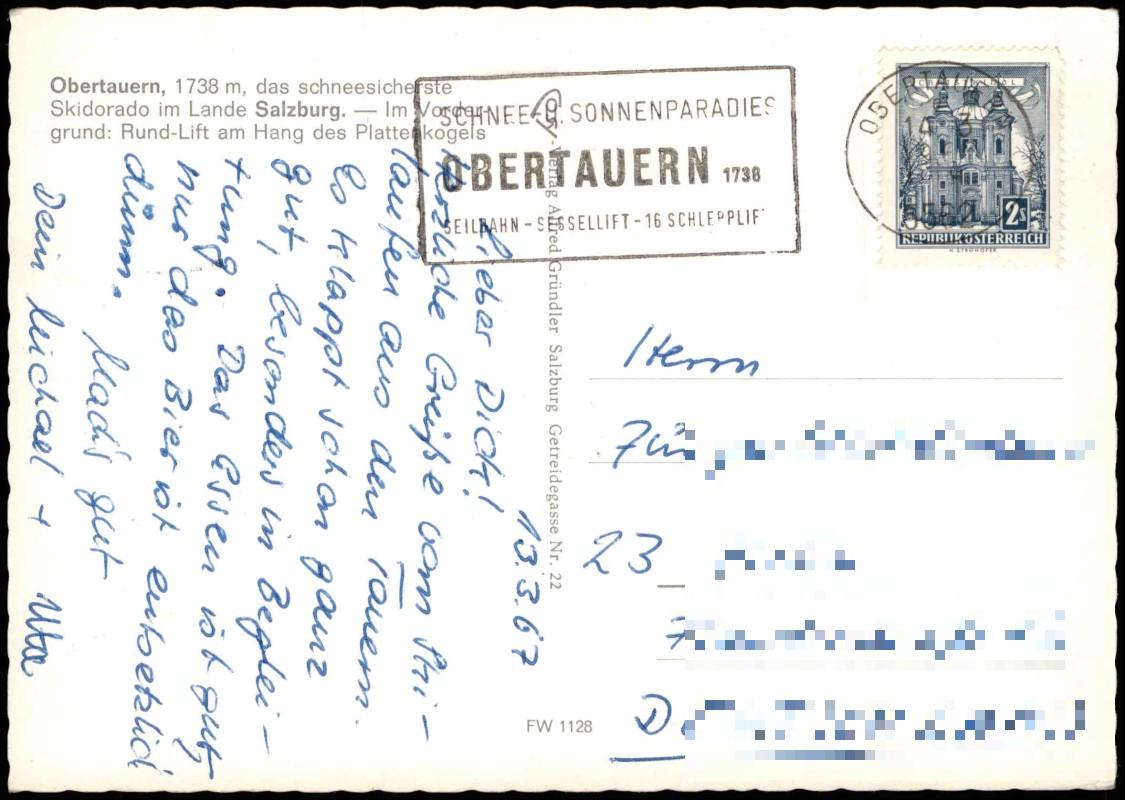 Obertauern, 1738 m, das schneesicherste
Skidorado im Lande Salzburg. — Im Vorder-
grund: Rund-Lift am Hang des Plattenkogels
SCHNEE- U. SONNENPARADIES
OBERTAUERN 1738
SEILBAHN - SESSELLIFT - 16 SCHLEPPLIF
OBERTAUERN
REPUBLIK ÖSTERREICH
2s
13.3.67
Lieber Dich!
Herzliche Grüße vom Ski-
laufen aus den Tauern.
Es klappt schon ganz
gut, besonders in Beglei-
tung. Das Essen ist gut,
nur das Bier ist entsetzlich
dünn.
Machs gut
Dein Michael +
Verlag Alfred Gründler Salzburg Getreidegasse Nr. 22
FW 1128
Herrn
23
D